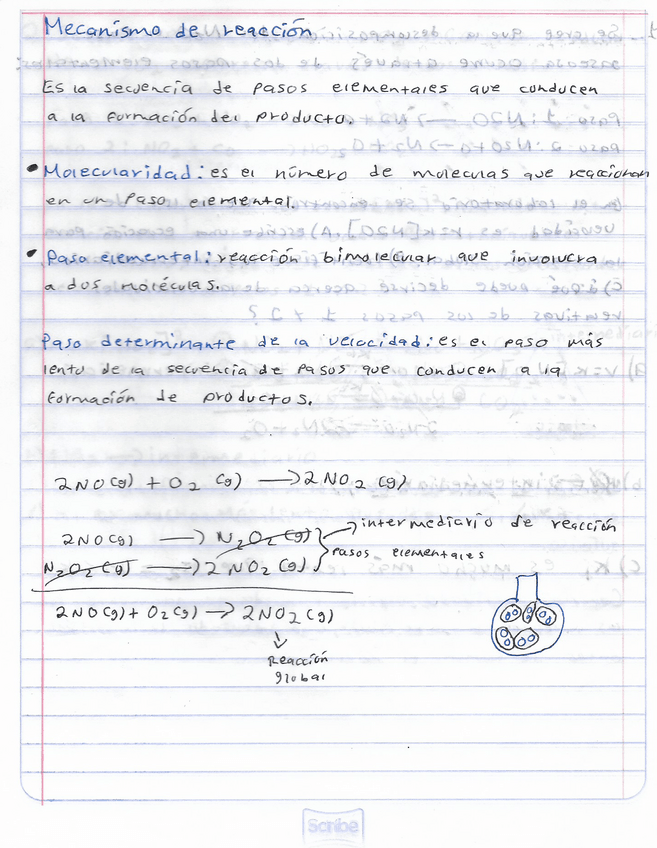 Mecanismo de reacción
Es la secuencia de pasos elementales que conducen
a la formación del producto.
• Molecularidad: es el número de moleculas que reaccionan
en un paso elemental.
• Paso elemental: reacción bimolecular que involucra
a dos moléculas.
Paso determinante de la velocidad: es el paso más
lento de la secuencia de pasos que conducen a la
formación de productos.
2NO(g) + O2 (g) → 2 NO2 (g)
2NO(g) → N2O2 (g) → intermediario de reacción
N2O2 (g) → 2 NO2 (g) pasos elementales
2NO(g) + O2(g) → 2NO2(g)
Reacción
global
Scribe